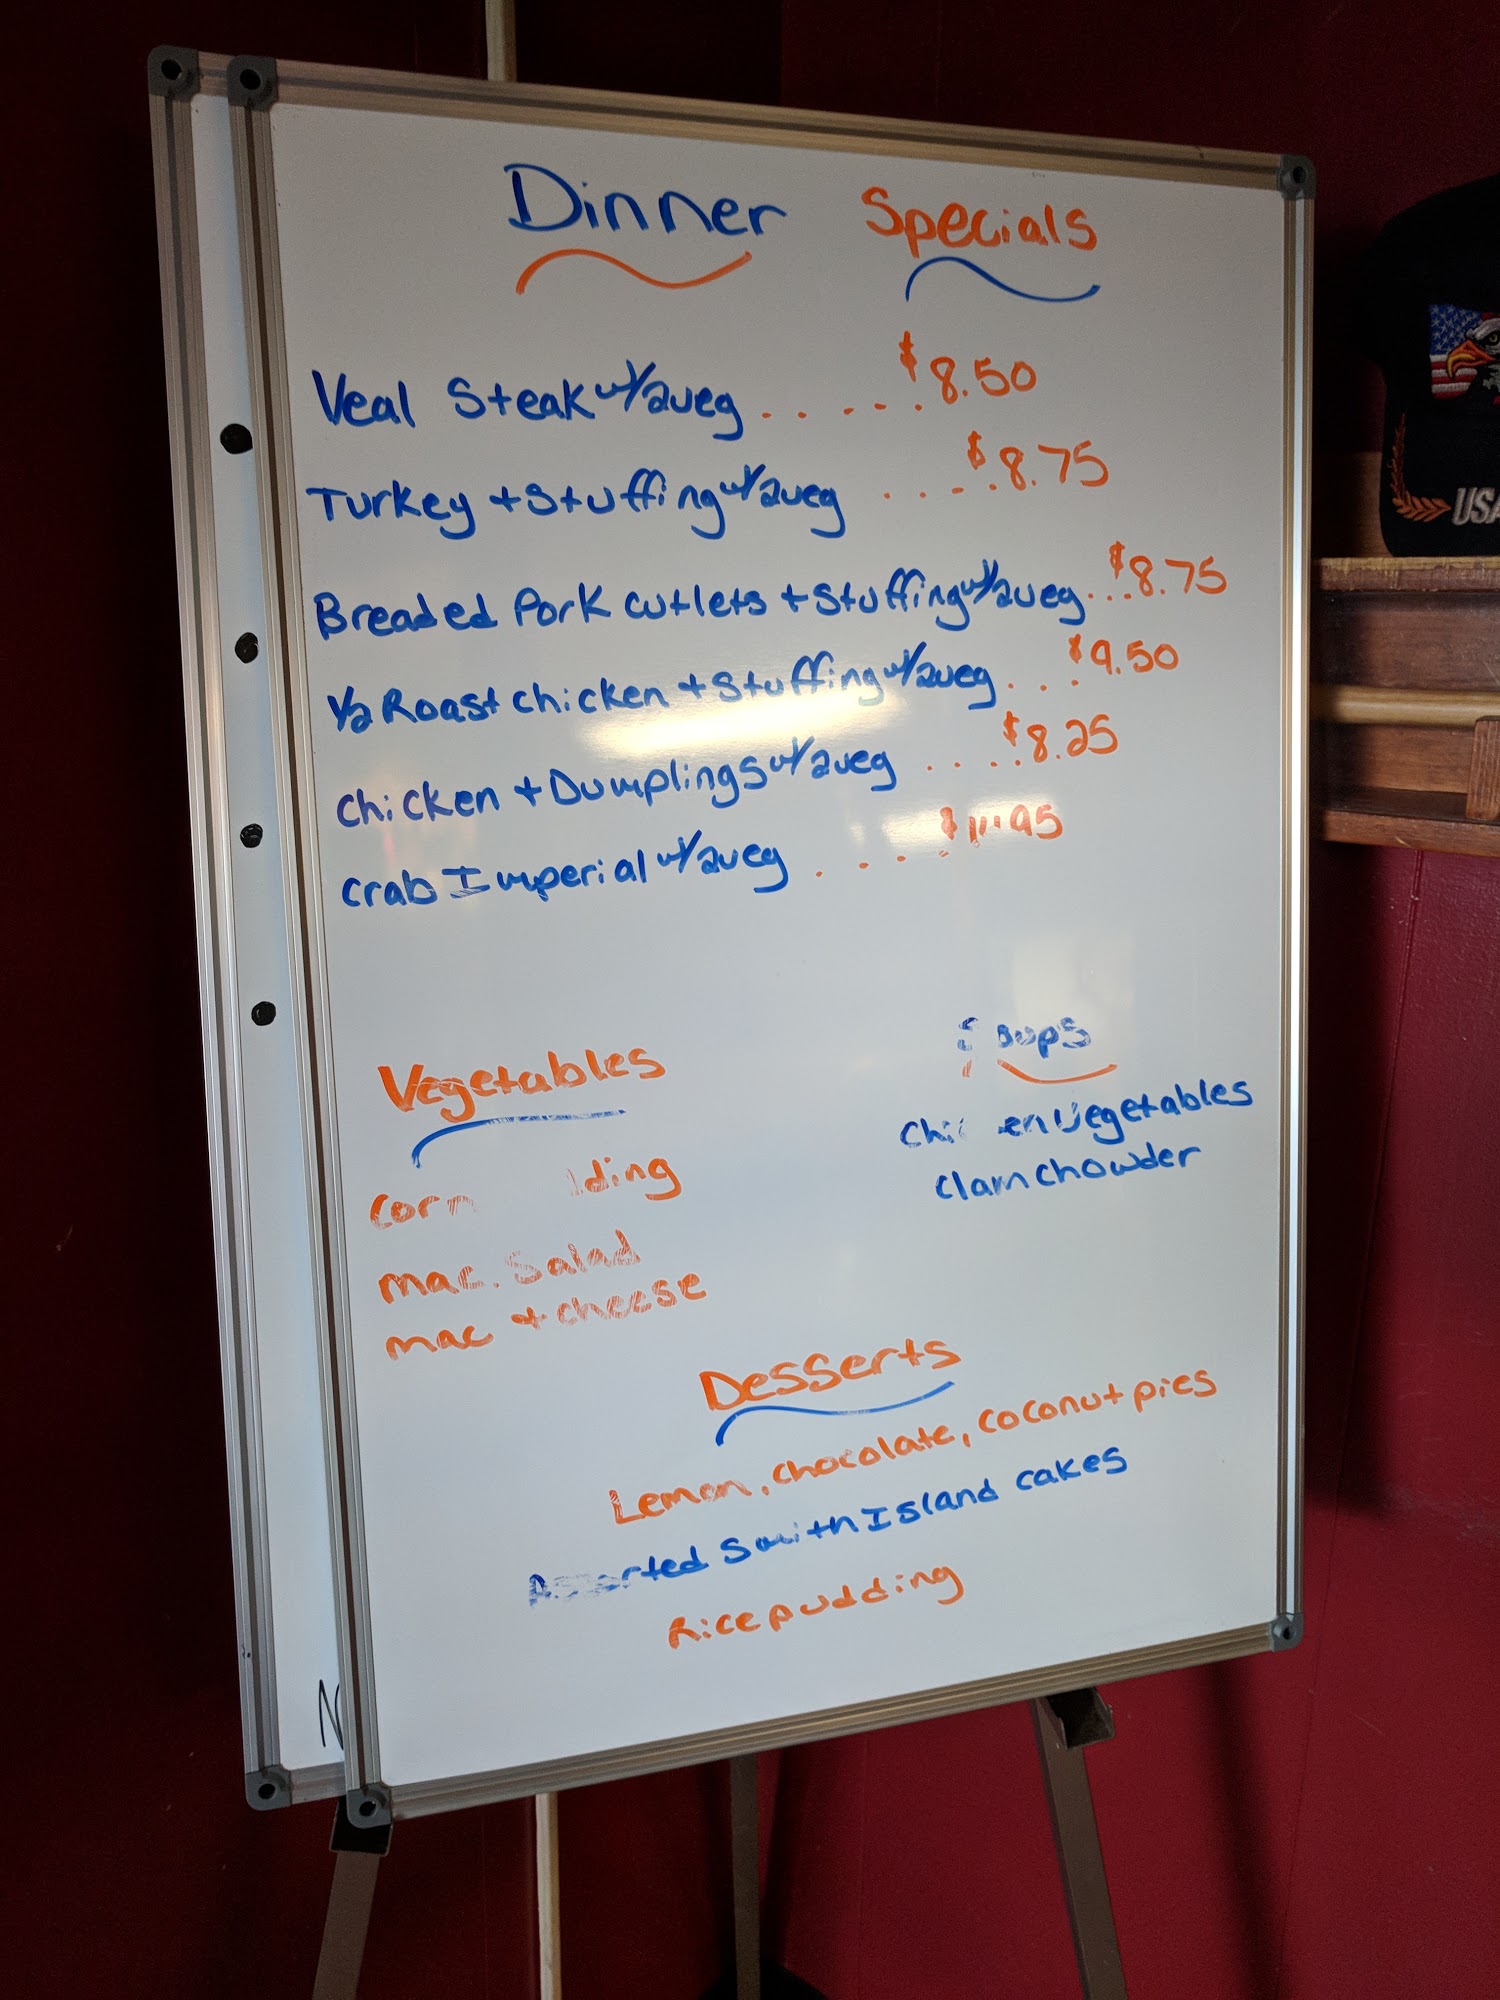 Dinner Specials
Veal Steak w/2veg ..... $8.50
Turkey + Stuffing w/2veg ..... $8.75
Breaded Pork cutlets + Stuffing w/2veg ... $8.75
1/2 Roast chicken + Stuffing w/2veg ... $9.50
chicken + Dumplings w/2veg ..... $8.25
crab Imperial w/2veg ...
Vegetables
corn
mac. Salad
mac + cheese
Soups
Chicken Vegetables
clam chowder
Desserts
Lemon, chocolate, coconut pies
Assorted Smith Island cakes
Rice pudding
USA